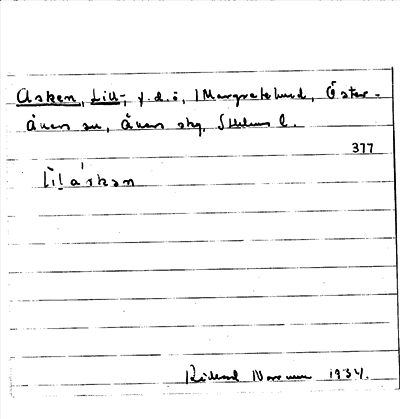 Asken, Lill-, f.d. ö, i Margretelund, Öster-
åkers sn, Åkers skg, Sthlms l.
377
lìl áskan
Rickard 1934.